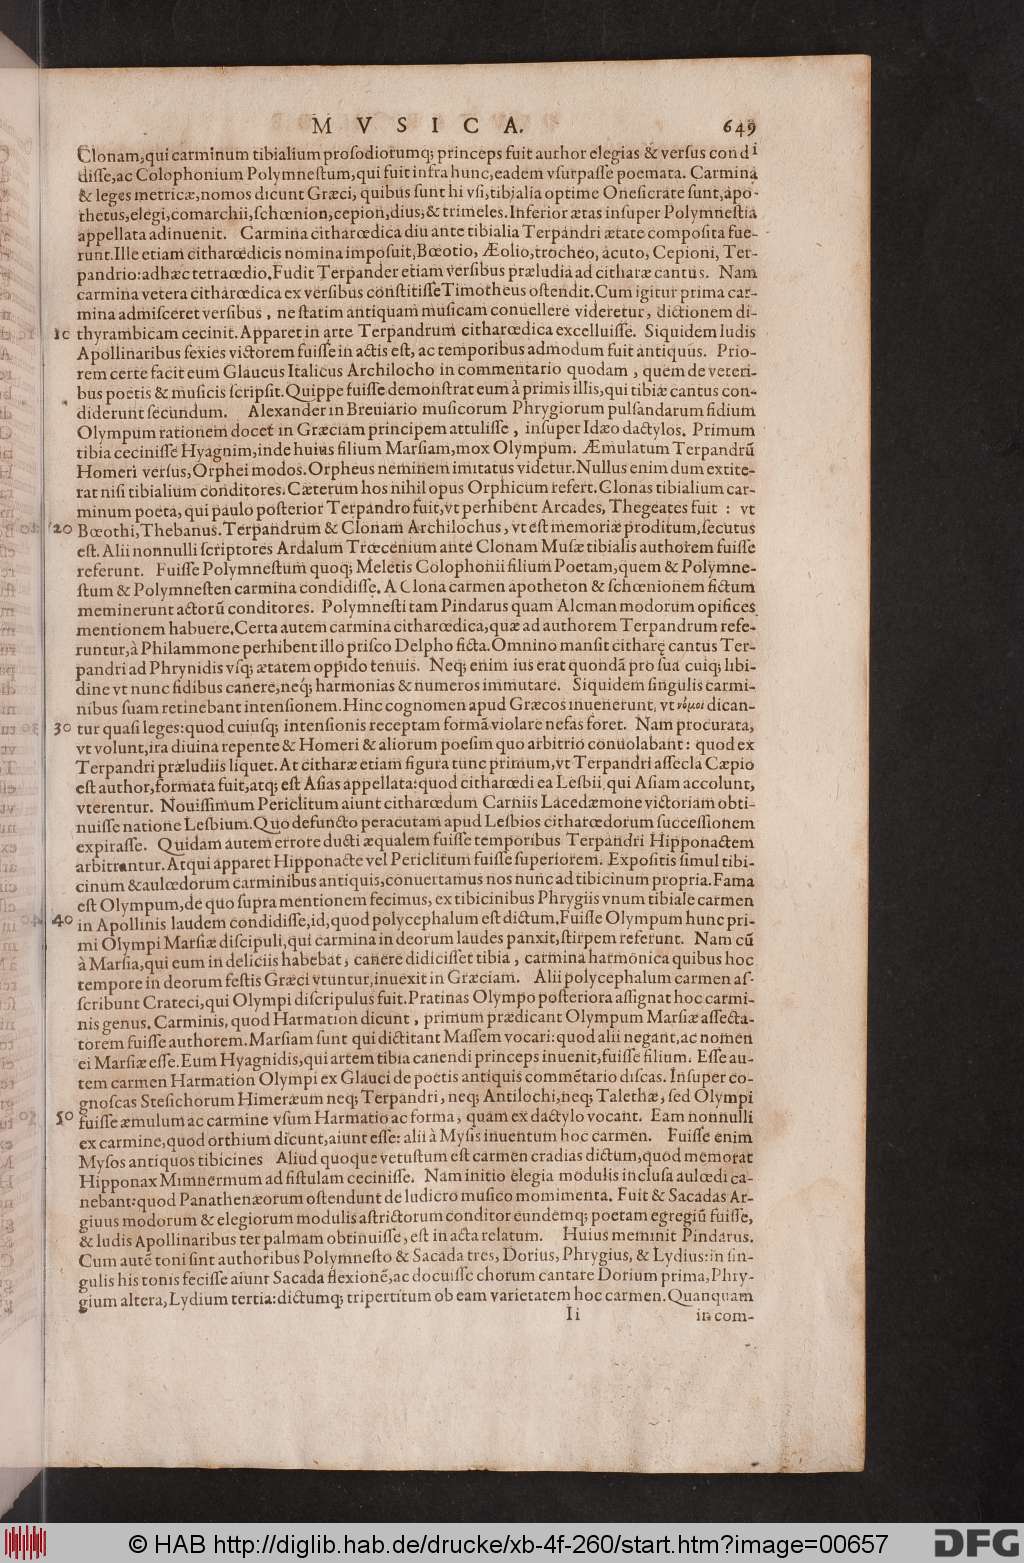 MVSICA. 649
Clonam,qui carminum tibialium prosodiorumq; princeps fuit author elegias & versus condi
disse,ac Colophonium Polymnestum,qui fuit infra hunc,eadem vsurpasse poemata. Carmina
& leges metricæ,nomos dicunt Græci, quibus sunt hi vsi,tibialia optime Onesicrate sunt,apo-
thetus,elegi,comarchii,schœnion,cepion,dius,& trimeles.Inferior ætas insuper Polymnestia
appellata adinuenit. Carmina citharœdica diu ante tibialia Terpandri ætate composita fue-
runt.Ille etiam citharœdicis nomina imposuit,Bœotio, Æolio,trocheo, acuto, Cepioni, Ter-
pandrio:adhæc tetraœdio.Fudit Terpander etiam versibus præludia ad citharæ cantus. Nam
carmina vetera citharœdica ex versibus constitisse Timotheus ostendit.Cum igitur prima car-
mina admisceret versibus , ne statim antiquam musicam conuellere videretur, dictionem di-
10 thyrambicam cecinit. Apparet in arte Terpandrum citharœdica excelluisse. Siquidem ludis
Apollinaribus sexies victorem fuisse in actis est, ac temporibus admodum fuit antiquus. Prio-
rem certe facit eum Glaucus Italicus Archilocho in commentario quodam , quem de veteri-
bus poetis & musicis scripsit.Quippe fuisse demonstrat eum à primis illis,qui tibiæ cantus con-
diderunt secundum. Alexander in Breuiario musicorum Phrygiorum pulsandarum fidium
Olympum rationem docet in Græciam principem attulisse , insuper Idæo dactylos. Primum
tibia cecinisse Hyagnim,inde huius filium Marsiam,mox Olympum. Æmulatum Terpandrū
Homeri versus,Orphei modos.Orpheus neminem imitatus videtur.Nullus enim dum extite-
rat nisi tibialium conditores.Cæterum hos nihil opus Orphicum refert.Clonas tibialium car-
minum poeta, qui paulo posterior Terpandro fuit,vt perhibent Arcades, Thegeates fuit : vt
20 Bœothi,Thebanus.Terpandrum & Clonam Archilochus , vt est memoriæ proditum,secutus
est. Alii nonnulli scriptores Ardalum Trœcenium ante Clonam Musæ tibialis authorem fuisse
referunt. Fuisse Polymnestum quoq; Meletis Colophonii filium Poetam,quem & Polymne-
stum & Polymnesten carmina condidisse. A Clona carmen apotheton & schœnionem fictum
meminerunt actorū conditores. Polymnesti tam Pindarus quam Alcman modorum opifices
mentionem habuere.Certa autem carmina citharœdica,quæ ad authorem Terpandrum refe-
runtur,à Philammone perhibent illo prisco Delpho ficta.Omnino mansit citharę cantus Ter-
pandri ad Phrynidis vsq; ætatem oppido tenuis. Neq; enim ius erat quondā pro sua cuiq; libi-
dine vt nunc fidibus canere,neq; harmonias & numeros immutare. Siquidem singulis carmi-
nibus suam retinebant intensionem.Hinc cognomen apud Græcos inuenerunt, vt νόμοι dican-
30 tur quasi leges:quod cuiusq; intensionis receptam formā violare nefas foret. Nam procurata,
vt volunt,ira diuina repente & Homeri & aliorum poesim quo arbitrio conuolabant: quod ex
Terpandri præludiis liquet.At citharæ etiam figura tunc primum,vt Terpandri assecla Cæpio
est author,formata fuit,atq; est Asias appellata:quod citharœdi ea Lesbii,qui Asiam accolunt,
vterentur. Nouissimum Periclitum aiunt citharœdum Carniis Lacedæmone victoriam obti-
nuisse natione Lesbium.Quo defuncto peracutam apud Lesbios citharœdorum successionem
expirasse. Quidam autem errore ducti æqualem fuisse temporibus Terpandri Hipponactem
arbitrantur.Atqui apparet Hipponacte vel Periclitum fuisse superiorem. Expositis simul tibi-
cinum & aulœdorum carminibus antiquis,conuertamus nos nunc ad tibicinum propria.Fama
est Olympum,de quo supra mentionem fecimus, ex tibicinibus Phrygiis vnum tibiale carmen
40 in Apollinis laudem condidisse,id,quod polycephalum est dictum.Fuisse Olympum hunc pri-
mi Olympi Marsiæ discipuli,qui carmina in deorum laudes panxit,stirpem referunt. Nam cū
à Marsia,qui eum in deliciis habebat, canere didicisset tibia , carmina harmonica quibus hoc
tempore in deorum festis Græci vtuntur,inuexit in Græciam. Alii polycephalum carmen as-
scribunt Crateci,qui Olympi discripulus fuit.Pratinas Olympo posteriora assignat hoc carmi-
nis genus. Carminis, quod Harmation dicunt , primum prædicant Olympum Marsiæ assecta-
torem fuisse authorem.Marsiam sunt qui dictitant Massem vocari:quod alii negant,ac nomen
ei Marsiæ esse.Eum Hyagnidis,qui artem tibia canendi princeps inuenit,fuisse filium. Esse au-
tem carmen Harmation Olympi ex Glauci de poetis antiquis commētario discas. Insuper co-
gnoscas Stesichorum Himeræum neq; Terpandri, neq; Antilochi,neq; Talethæ, sed Olympi
50 fuisse æmulum ac carmine vsum Harmatio ac forma, quam ex dactylo vocant. Eam nonnulli
ex carmine,quod orthium dicunt,aiunt esse: alii à Mysis inuentum hoc carmen. Fuisse enim
Mysos antiquos tibicines Aliud quoque vetustum est carmen cradias dictum,quod memorat
Hipponax Mimnermum ad fistulam cecinisse. Nam initio elegia modulis inclusa aulœdi ca-
nebant:quod Panathenæorum ostendunt de ludicro musico momimenta. Fuit & Sacadas Ar-
giuus modorum & elegiorum modulis astrictorum conditor eundemq; poetam egregiū fuisse,
& ludis Apollinaribus ter palmam obtinuisse, est in acta relatum. Huius meminit Pindarus.
Cum autē toni sint authoribus Polymnesto & Sacada tres, Dorius, Phrygius, & Lydius:in sin-
gulis his tonis fecisse aiunt Sacada flexionē,ac docuisse chorum cantare Dorium prima,Phry-
gium altera,Lydium tertia:dictumq; tripertitum ob eam varietatem hoc carmen.Quanquam
Ii in com-
© HAB http://diglib.hab.de/drucke/xb-4f-260/start.htm?image=00657
DFG